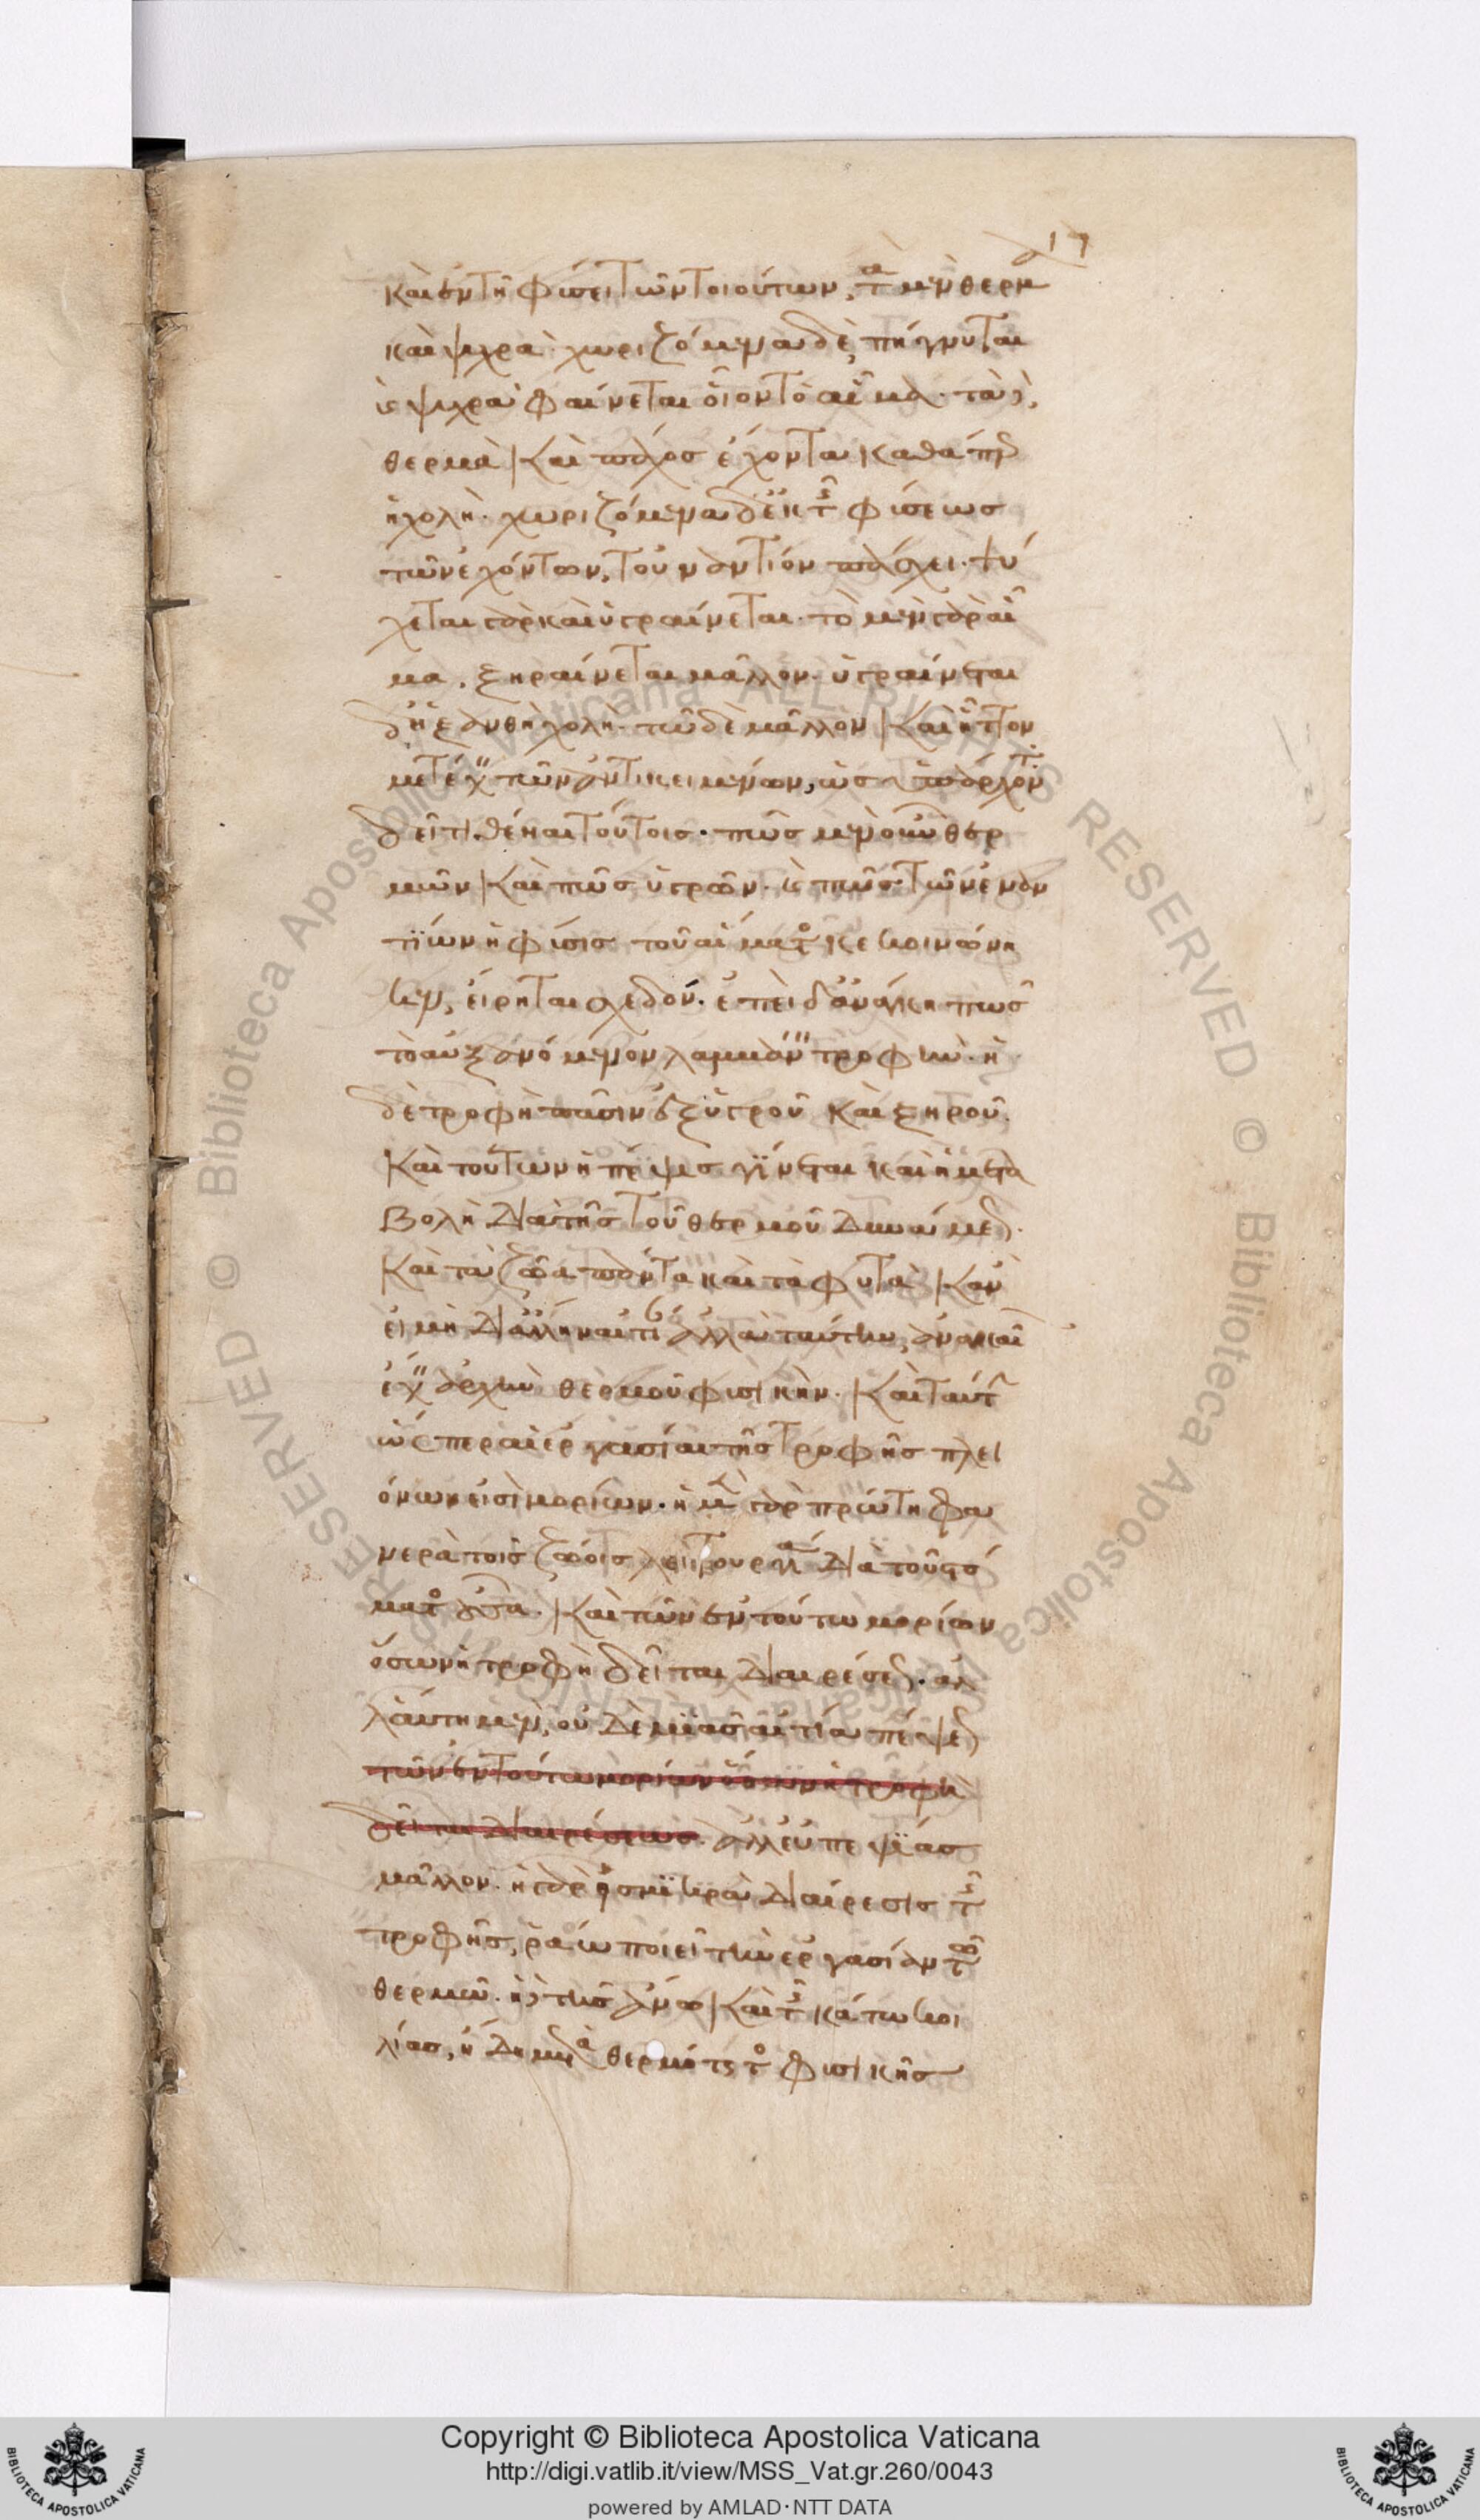 καὶ ἐν τῇ φύσει τῶν τοιούτων, τὰ μὲν θερμὰ
καὶ ψυχρὰ· χωριζόμενα δὲ, πήγνυται
καὶ ψυχρὰ φαίνεται οἷον τὸ αἷμα· τὰ δὲ,
θερμὰ καὶ πάχος ἔχοντα καθάπερ
ἡ χολὴ· χωριζόμενα δ' ἐκ τῆς φύσεως
τῶν ἐχόντων, τοὐναντίον πάσχει· ψύ
χεται γὰρ καὶ ὑγραίνεται· τὸ μὲν γὰρ αἷ
μα, ξηραίνεται μᾶλλον· ὑγραίνεται
δ' ἡ ξανθὴ χολὴ· τῶ δὲ μᾶλλον καὶ ἧττον
μετέχειν τῶν ἀντικειμένων, ὡς ὑπάρχον
δεῖ τιθέναι τούτοις· πῶς μὲν οὖν θερ
μὸν καὶ πῶς ὑγρὸν· καὶ πῶς τῶν ἐναν
τίων ἡ φύσις τοῦ αἵματος κεκοινώνη
κεν, εἴρηται σχεδόν· ἐπεὶ δ' ἀνάγκη πως
τὸ αὐξανόμενον λαμβάνειν τροφὴν· ἡ
δὲ τροφὴ πᾶσιν ἐξ ὑγροῦ καὶ ξηροῦ·
καὶ τούτων ἡ πέψις γίνεται καὶ ἡ μετα
βολὴ διὰ τῆς τοῦ θερμοῦ δυνάμεως·
καὶ τὰ ζῶα πάντα καὶ τὰ φυτὰ κἂν
εἰ μὴ δι' ἄλλην αἰτίαν ἀλλὰ ταύτην, ἀναγκαῖον
ἔχειν ἀρχὴν θερμοῦ φυσικὴν· καὶ ταύτην
ὥσπερ αἱ ἐργασίαι τῆς τροφῆς πλει
όνων εἰσὶ μορίων· ἡ μὲν γὰρ πρώτη φα
νερὰ τοῖς ζώοις λειτουργία διὰ τοῦ στό
ματος οὖσα· καὶ τῶν ἐν τούτω μορίων
ὅσων ἡ τροφὴ δεῖται διαιρέσεως· ἀλ
λ' αὕτη μὲν, οὐδεμιᾶς αἰτία πέψεως
τῶν ἐν τούτω μορίων ὅσων ἡ τροφὴ
δεῖται διαιρέσεως· ἀλλ' εὐπεψίας
μᾶλλον· ἡ γὰρ εἰς μικρὰ διαίρεσις τῆς
τροφῆς, ῥάω ποιεῖ τὴν ἐργασίαν τῶ
θερμῶ· ἡ δὲ τῆς ἄνω καὶ τῆς κάτω κοι
λίας, ἤδη μετὰ θερμότητος φυσικῆς
Copyright © Biblioteca Apostolica Vaticana
http://digi.vatlib.it/view/MSS_Vat.gr.260/0043
powered by AMLAD·NTT DATA